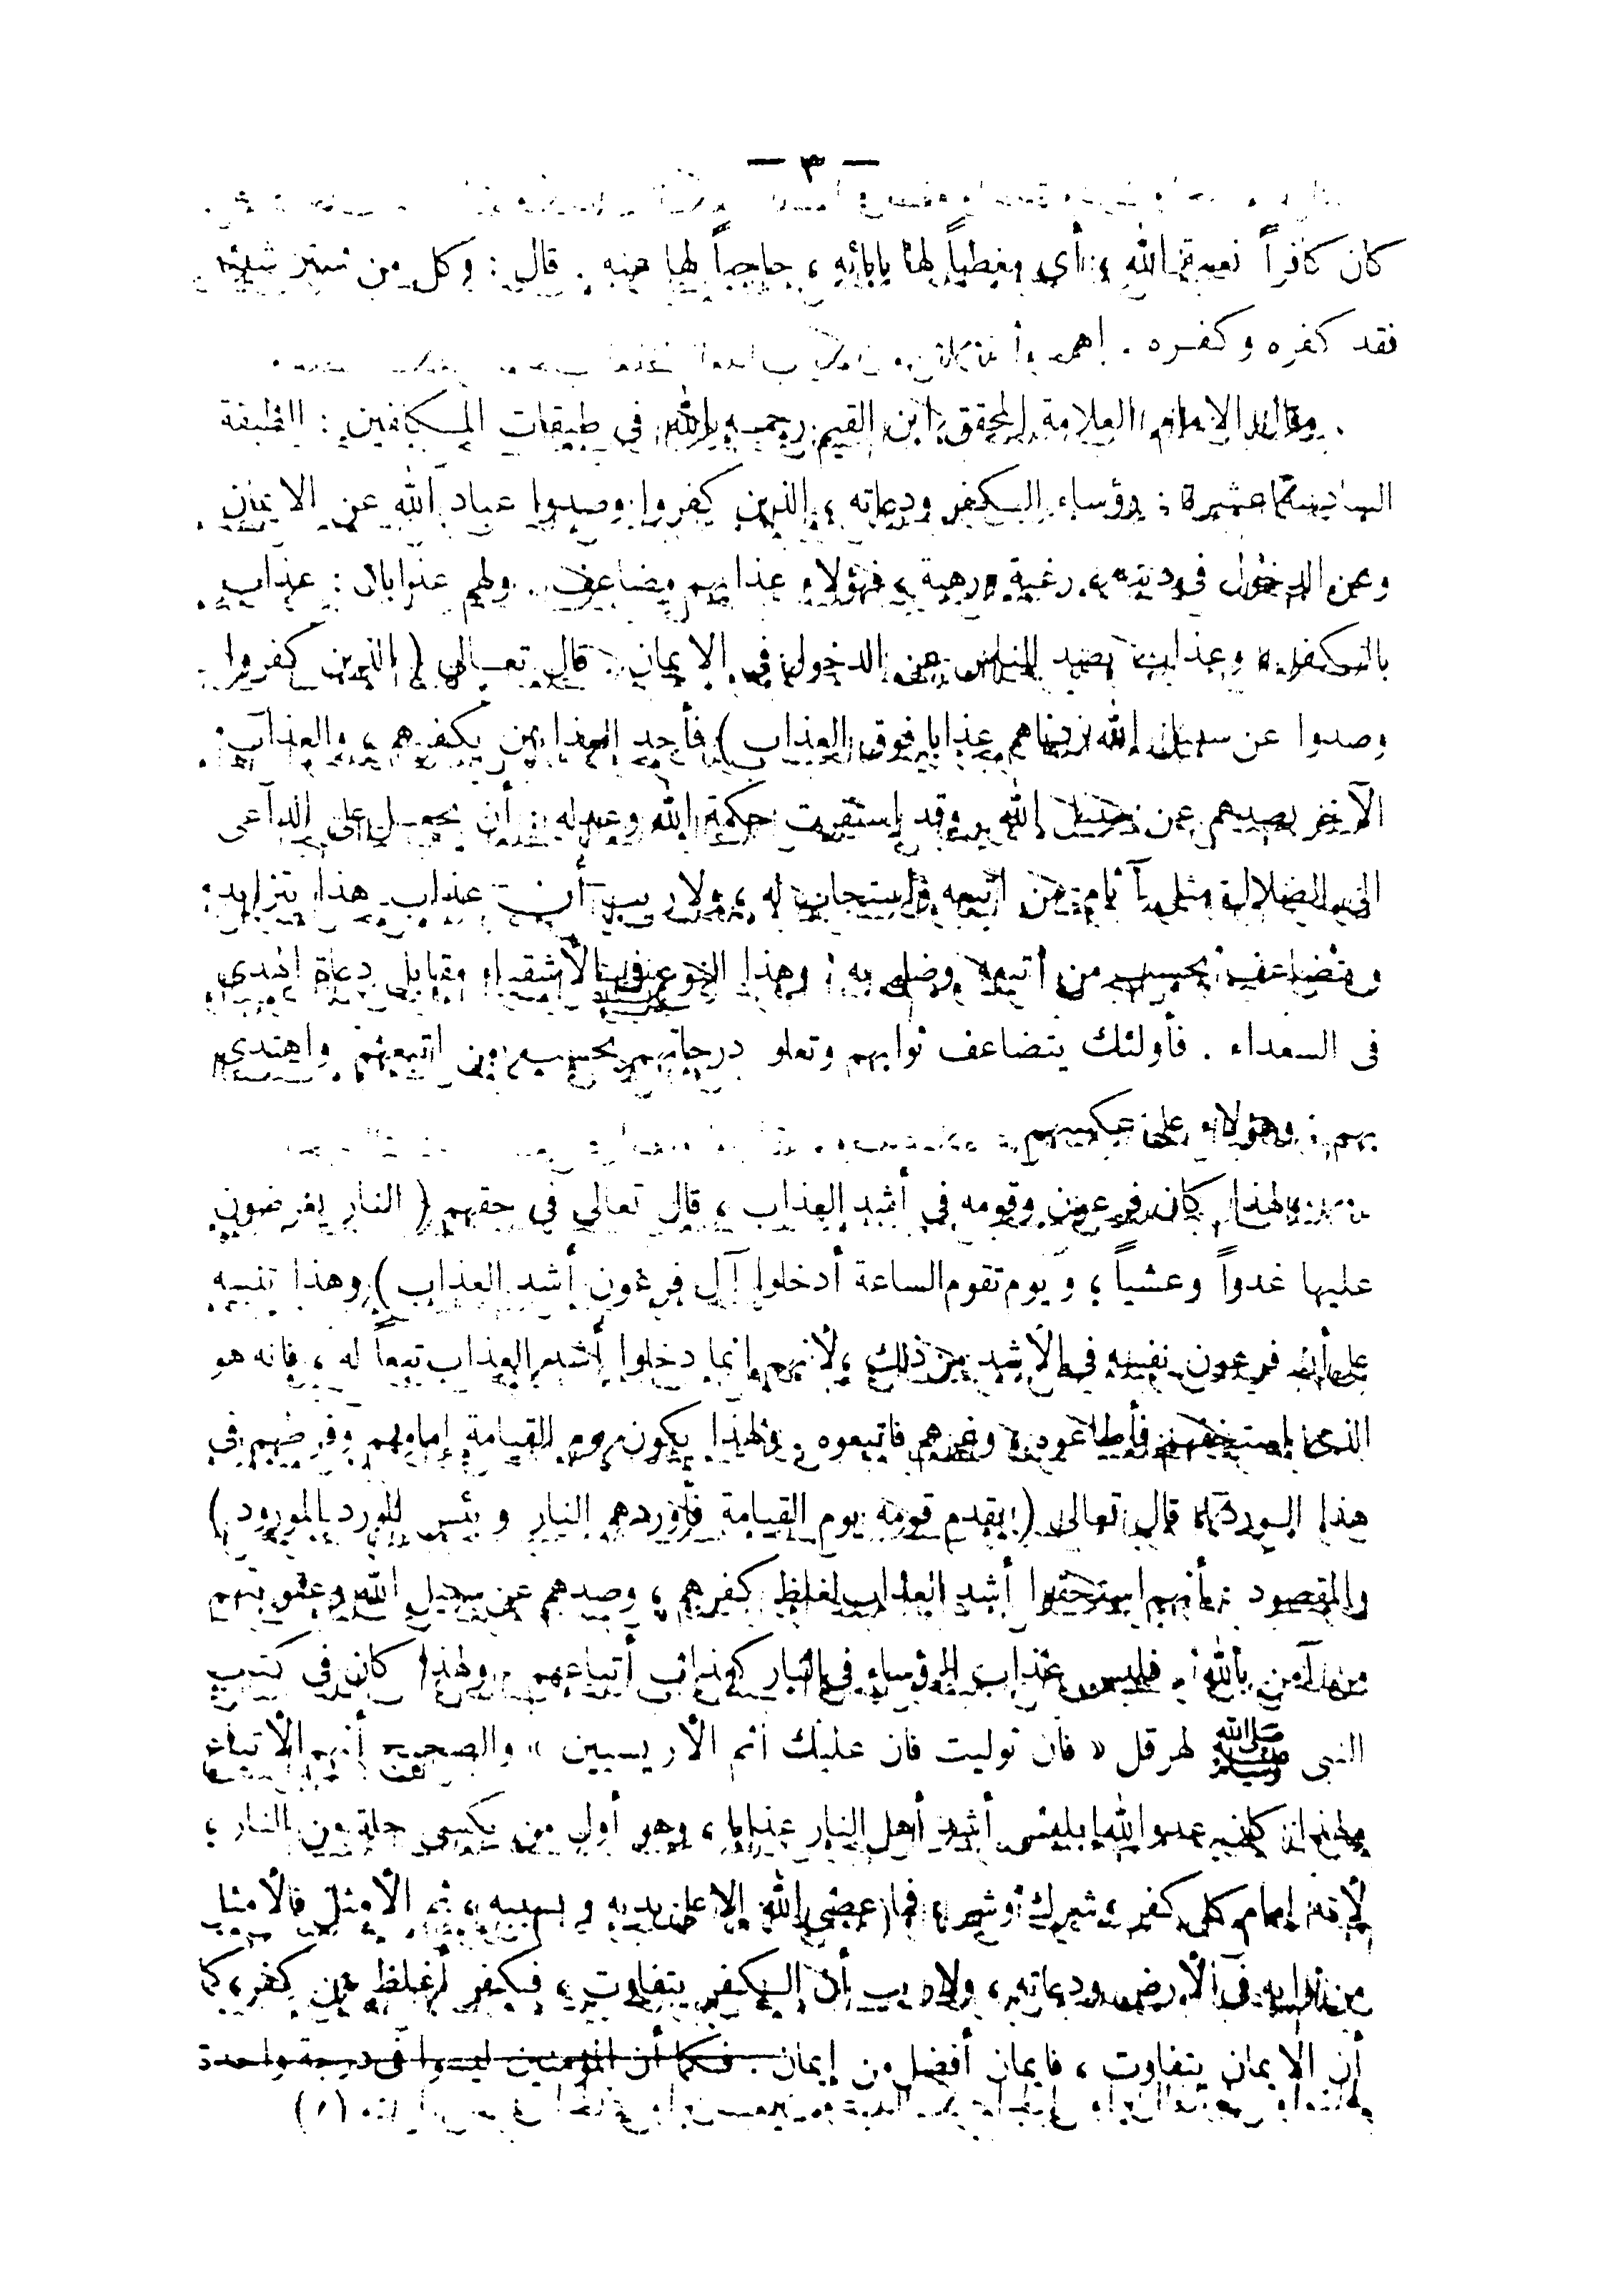 — ٣ —
كان كافراً نعمة الله ، أى مغطياً لها بابائه ، حاجباً لها عنه . قال : وكل من ستر شيئا
فقد كفره وكفـره . اهـ
وقال الامام العلامة المحقق ابن القيم رحمه الله فى طبقات المـكلفين : الطبقة
السادسة عشرة : رؤساء الـكفر ودعاته ، الذين كفروا وصدوا عباد الله عن الايمان
وعن الدخول فى دينه رغبة ورهبة ، فهؤلاء عذابهم مضاعف . ولهم عذابان : عذاب
بالـكفر ، وعذاب بصد الناس عن الدخول فى الايمان . قال تعـالى ( الذين كفروا
وصدوا عن سبيل الله زدناهم عذابا فوق العذاب ) فأحد العذابين بكفرهم ، والعذاب
الآخر بصدهم عن سبيل الله . وقد استقرت حكمة الله وعدله : أن يجعـل على الداعى
الى الضلالة مثل آثام من اتبعه واستجاب له ، ولا ريب أن عذاب هذا يتزايد
ويتضاعف بحسب من اتبعه وضل به ; وهذا النوع فى الأشقياء مقابل دعاة الهدى
فى السعداء . فأولئك يتضاعف ثوابهم وتعلو درجاتهم بحسب من اتبعهم واهتدى
بهم ; وهؤلاء على عكسهم
ولهذا كان فرعون وقومه فى أشد العذاب ، قال تعالى فى حقهم ( النار يعرضون
عليها غدواً وعشياً ، ويوم تقوم الساعة أدخلوا آل فرعون أشد العذاب ) وهذا تنبيه
على أن فرعون نفسه فى الأشد من ذلك ، لأنهم انما دخلوا أشد العذاب تبعاً له ، فانه هو
الذى استخفهم فأطاعوه ، وغرهم فاتبعوه . ولهذا يكون يوم القيامة إمامهم وفرطهم فى
هذا الـورد ، قال تعالى ( يقدم قومه يوم القيامة فأوردهم النار وبئس الورد المورود )
والمقصود : أنهم استحقوا أشد العذاب لغلظ كفرهم ، وصدهم عن سبيل الله وعقوبتهم
من آمن بالله . فليس عذاب الرؤساء فى النار كعذاب أتباعهم . ولهذا كان فى كتب
النبى ﷺ لهرقل « فان توليت فان عليك اثم الأريسيين » والصحيح أنهم الأتباع
ولهذا كان عدو الله إبليس أشد أهل النار عذابا ، وهو أول من يكسى حلة من النار ،
لأنه إمام كل كفر وشرك وشر ، فما عصى الله إلا على يديه وبسببه ، ثم الأمثل فالأمثل
من نوابه فى الأرض ودعاته ، ولا ريب أن الـكفر يتفاوت ، فـكفر أغلظ من كفر ، كما
أن الايمان يتفاوت ، فايمان أفضل من إيمان . فـكما أن المؤمنين ليسوا فى درجة واحدة
(١)